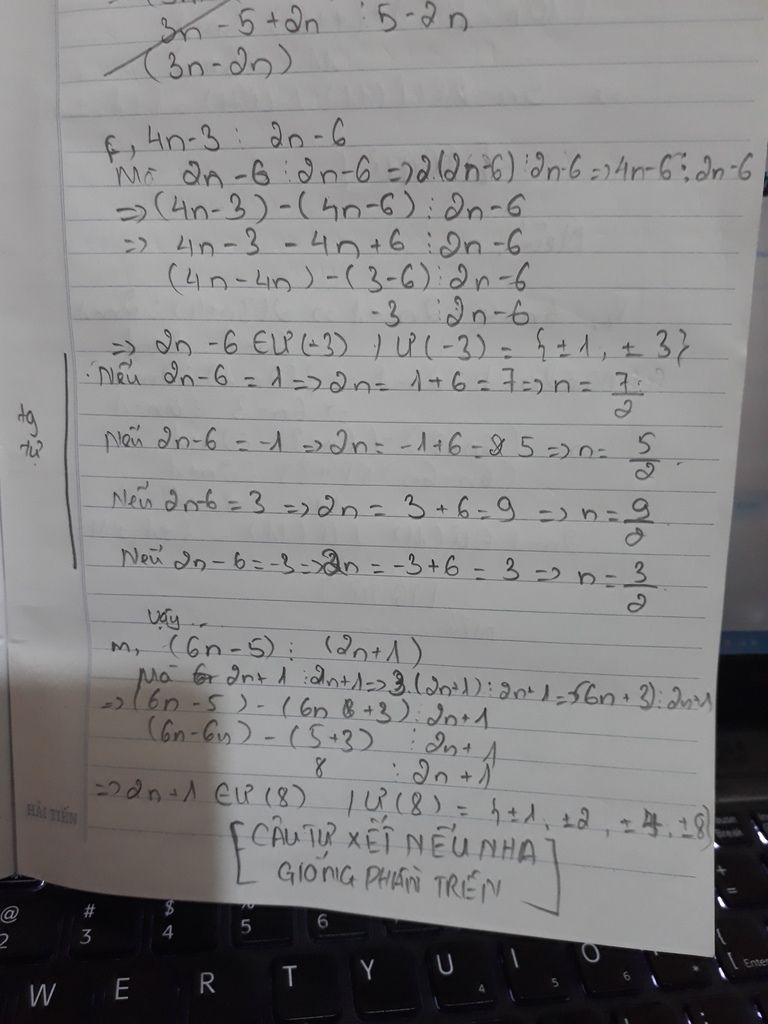 3n - 5 + 2n ⋮ 5 - 2n
(3n - 2n)
f, 4n-3 ⋮ 2n-6
Mà 2n-6 ⋮ 2n-6 => 2.(2n-6) ⋮ 2n-6 => 4n-6 ⋮ 2n-6
=> (4n-3) - (4n-6) ⋮ 2n-6
=> 4n-3 - 4n+6 ⋮ 2n-6
(4n-4n) - (3-6) ⋮ 2n-6
-3 ⋮ 2n-6
=> 2n-6 ∈ Ư(-3) / Ư(-3) = {±1, ±3}
Nếu 2n-6 = 1 => 2n = 1+6 = 7 => n = 7/2
tg tự
Nếu 2n-6 = -1 => 2n = -1+6 = 5 => n = 5/2
Nếu 2n-6 = 3 => 2n = 3+6 = 9 => n = 9/2
Nếu 2n-6 = -3 => 2n = -3+6 = 3 => n = 3/2
Vậy ...
m, (6n-5) ⋮ (2n+1)
Mà 2n+1 ⋮ 2n+1 => 3.(2n+1) ⋮ 2n+1 => (6n+3) ⋮ 2n+1
=> (6n-5) - (6n+3) ⋮ 2n+1
(6n-6n) - (5+3) ⋮ 2n+1
8 ⋮ 2n+1
=> 2n+1 ∈ Ư(8) / Ư(8) = {±1, ±2, ±4, ±8}
HẢI TIẾN
[CÂU TỰ XÉT NẾU NHA
GIỐNG PHẦN TRÊN]
@ # $ %
2 3 4 5 6
W E R T Y U I O
4 5 6
Break
Enter